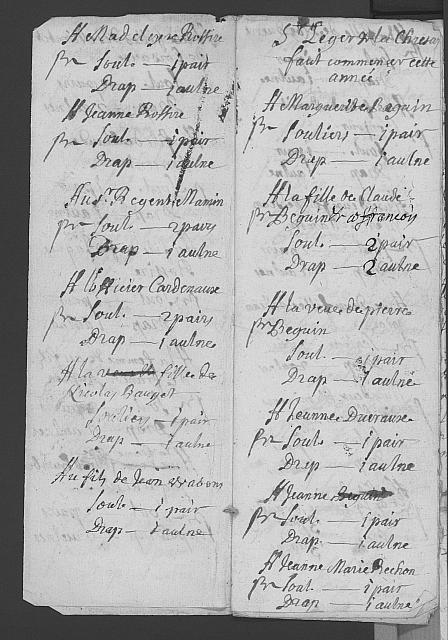 A Madeleyne Roffire
pr Soul. — 1 pair
Drap — 1 aulne
A Jeanne Roffire
pr Soul. — 1 pair
Drap — 1 aulne
Au Sr. Regent Mamin
pr Soul. — 2 pairs
Drap — 1 aulne
A l'officier Cardenaux
pr Soul. — 2 pairs
Drap — 1 aulne
A la fille de
Nicolas
Souliers — 1 pair
Drap — 1 aulne
Au fils de Jean
Soul. — 1 pair
Drap — 1 aulne
St Leger & la Chiesaz
faut commencer cette
année
A Marguerithe Beguin
pr Souliers — 1 pair
Drap — 1 aulne
A la fille de Claude
pr Beguin & a françois
Soul. — 2 pair
Drap — 2 aulne
A la veuve de pierre
pr Beguin
Soul. — 1 pair
Drap — 1 aulne
A Jeanne Ducraux
pr Soul. — 1 pair
Drap — 1 aulne
A Jeanne
pr Soul. — 1 pair
Drap — 1 aulne
A Jeanne Marie Rechon
pr Soul. — 1 pair
Drap — 1 aulne